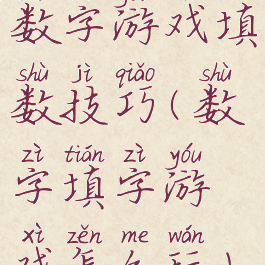 数字游戏填
shù jì qiǎo shù
数技巧(数
zì tián zì yóu
字填字游
xì zěn me wán
戏怎么玩)